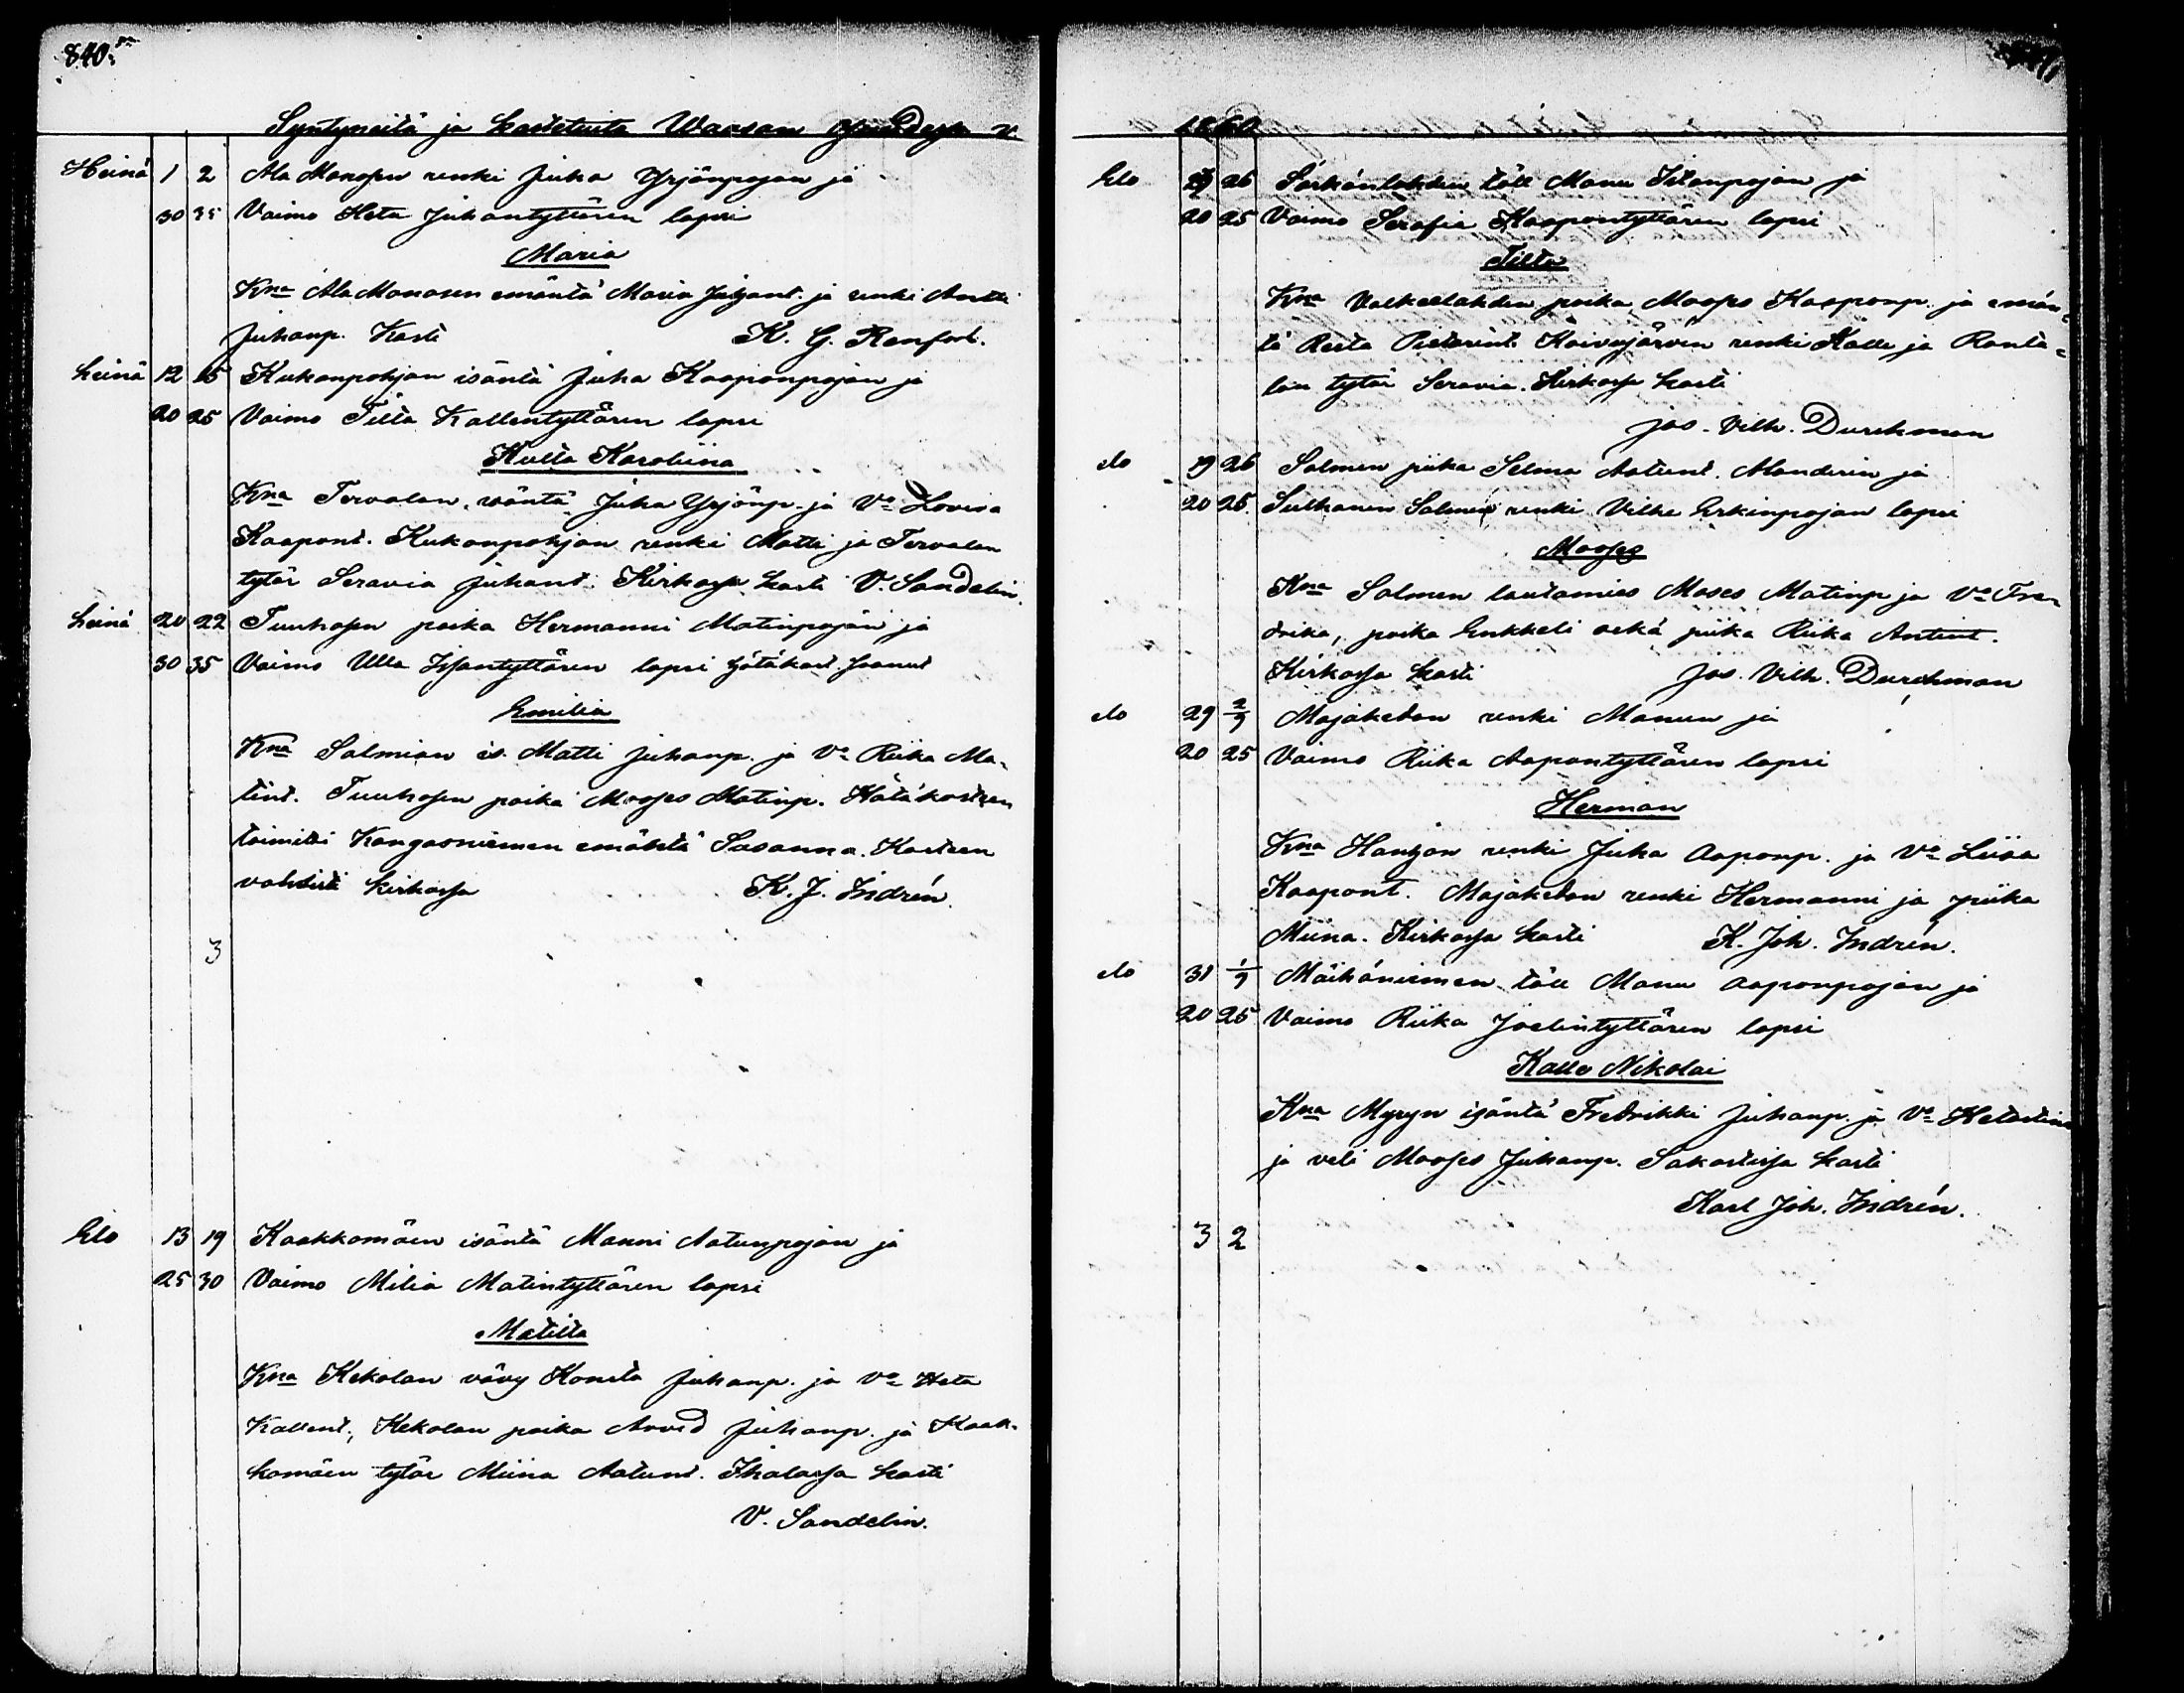 840.
Syntyneitä ja kastetuita Waasan v.
Heinä 1 2 Ala Monosen renki Juha Yrjönpojan ja
30 35 Vaimo Heta Juhantyttären lapsi
Maria
Kna Ala Monosen emäntä Maria Juhant. ja renki Antti
Juhanp. Kasti K. G. Renfors.
heinä 12 15 Kukonpohjan isäntä Juha Kaaponpojan ja
20 25 Vaimo Tilta Kallentyttären lapsi
Hulta Karoliina
Kna Tervalan isäntä Juha Yrjönp. ja Vo Lovisa
Kaapont. Kukonpohjan renki Matti ja Tervalan
tytär Seravia Juhant. Kirkossa kasti V. Sandelin.
heinä 20 22 Tuuhosen poika Hermanni Matinpojan ja
30 35 Vaimo Ulla Issantyttären lapsi hätäkast. saanut
Emilia
Kna Salmian is. Matti Juhanp. ja Vo Riika Ma-
tint. Tuuhosen poika Mooses Matinp. Hätäkasteen
toimitti Kangasniemen emäntä Susanna. Kasteen
vahvisti kirkossa K. J. Indrén.
3
Elo 13 19 Kaakkomäen isäntä Manni Aatunpojan ja
25 30 Vaimo Milia Matintyttären lapsi
Matilta
Kna Kekolan vävy Konsta Juhanp. ja Vo Heta
Kallent., Kekolan poika Arvid Juhanp. ja Kaak-
komäen tytär Miina Aatunt. Ihalassa kasti
V. Sandelin.
1860
Elo 19 26 Särkänlahden töll Manu Iitanpojan ja
20 25 Vaimo Serafia Kaapontyttären lapsi
Tilta
Kna Valkeelahden poika Mooses Kaaponp. ja emän-
tä Reeta Pietarint. Koivujärven renki Kalle ja Ranta-
lan tytär Seravia. Kirkossa kasti
Jos. Vilh. Durchman
elo 19 26 Salmen piika Selma Aatunt. Manderin ja
20 25. Sulkanen Salmen renki Vilhe Erkinpojan lapsi
Mooses
Kna Salmen lautamies Moses Matinp ja Vo Fre-
drika, poika Enkkeli sekä piika Riika Antint.
Kirkossa kasti Jos. Vilh. Durchman
elo 29 2/9 Majakedon renki Manun ja
20 25 Vaimo Riika Aapontyttären lapsi
Herman
Kna Hanhon renki Juha Aaponp. ja Vo Liisa
Kaapont. Majakedon renki Hermanni ja piika
Miina. Kirkossa kasti K. Joh. Indrén.
elo 31 1/9 Mäihäniemen töll Manu Aaponpojan ja
20 25 Vaimo Riika Joelintyttären lapsi
Kalle Nikolai
Kna Myryn isäntä Fredrikki Juhanp. ja Vo Hetastina
ja veli Mooses Juhanp. Sakastissa kasti
Karl Joh. Indrén.
3 2